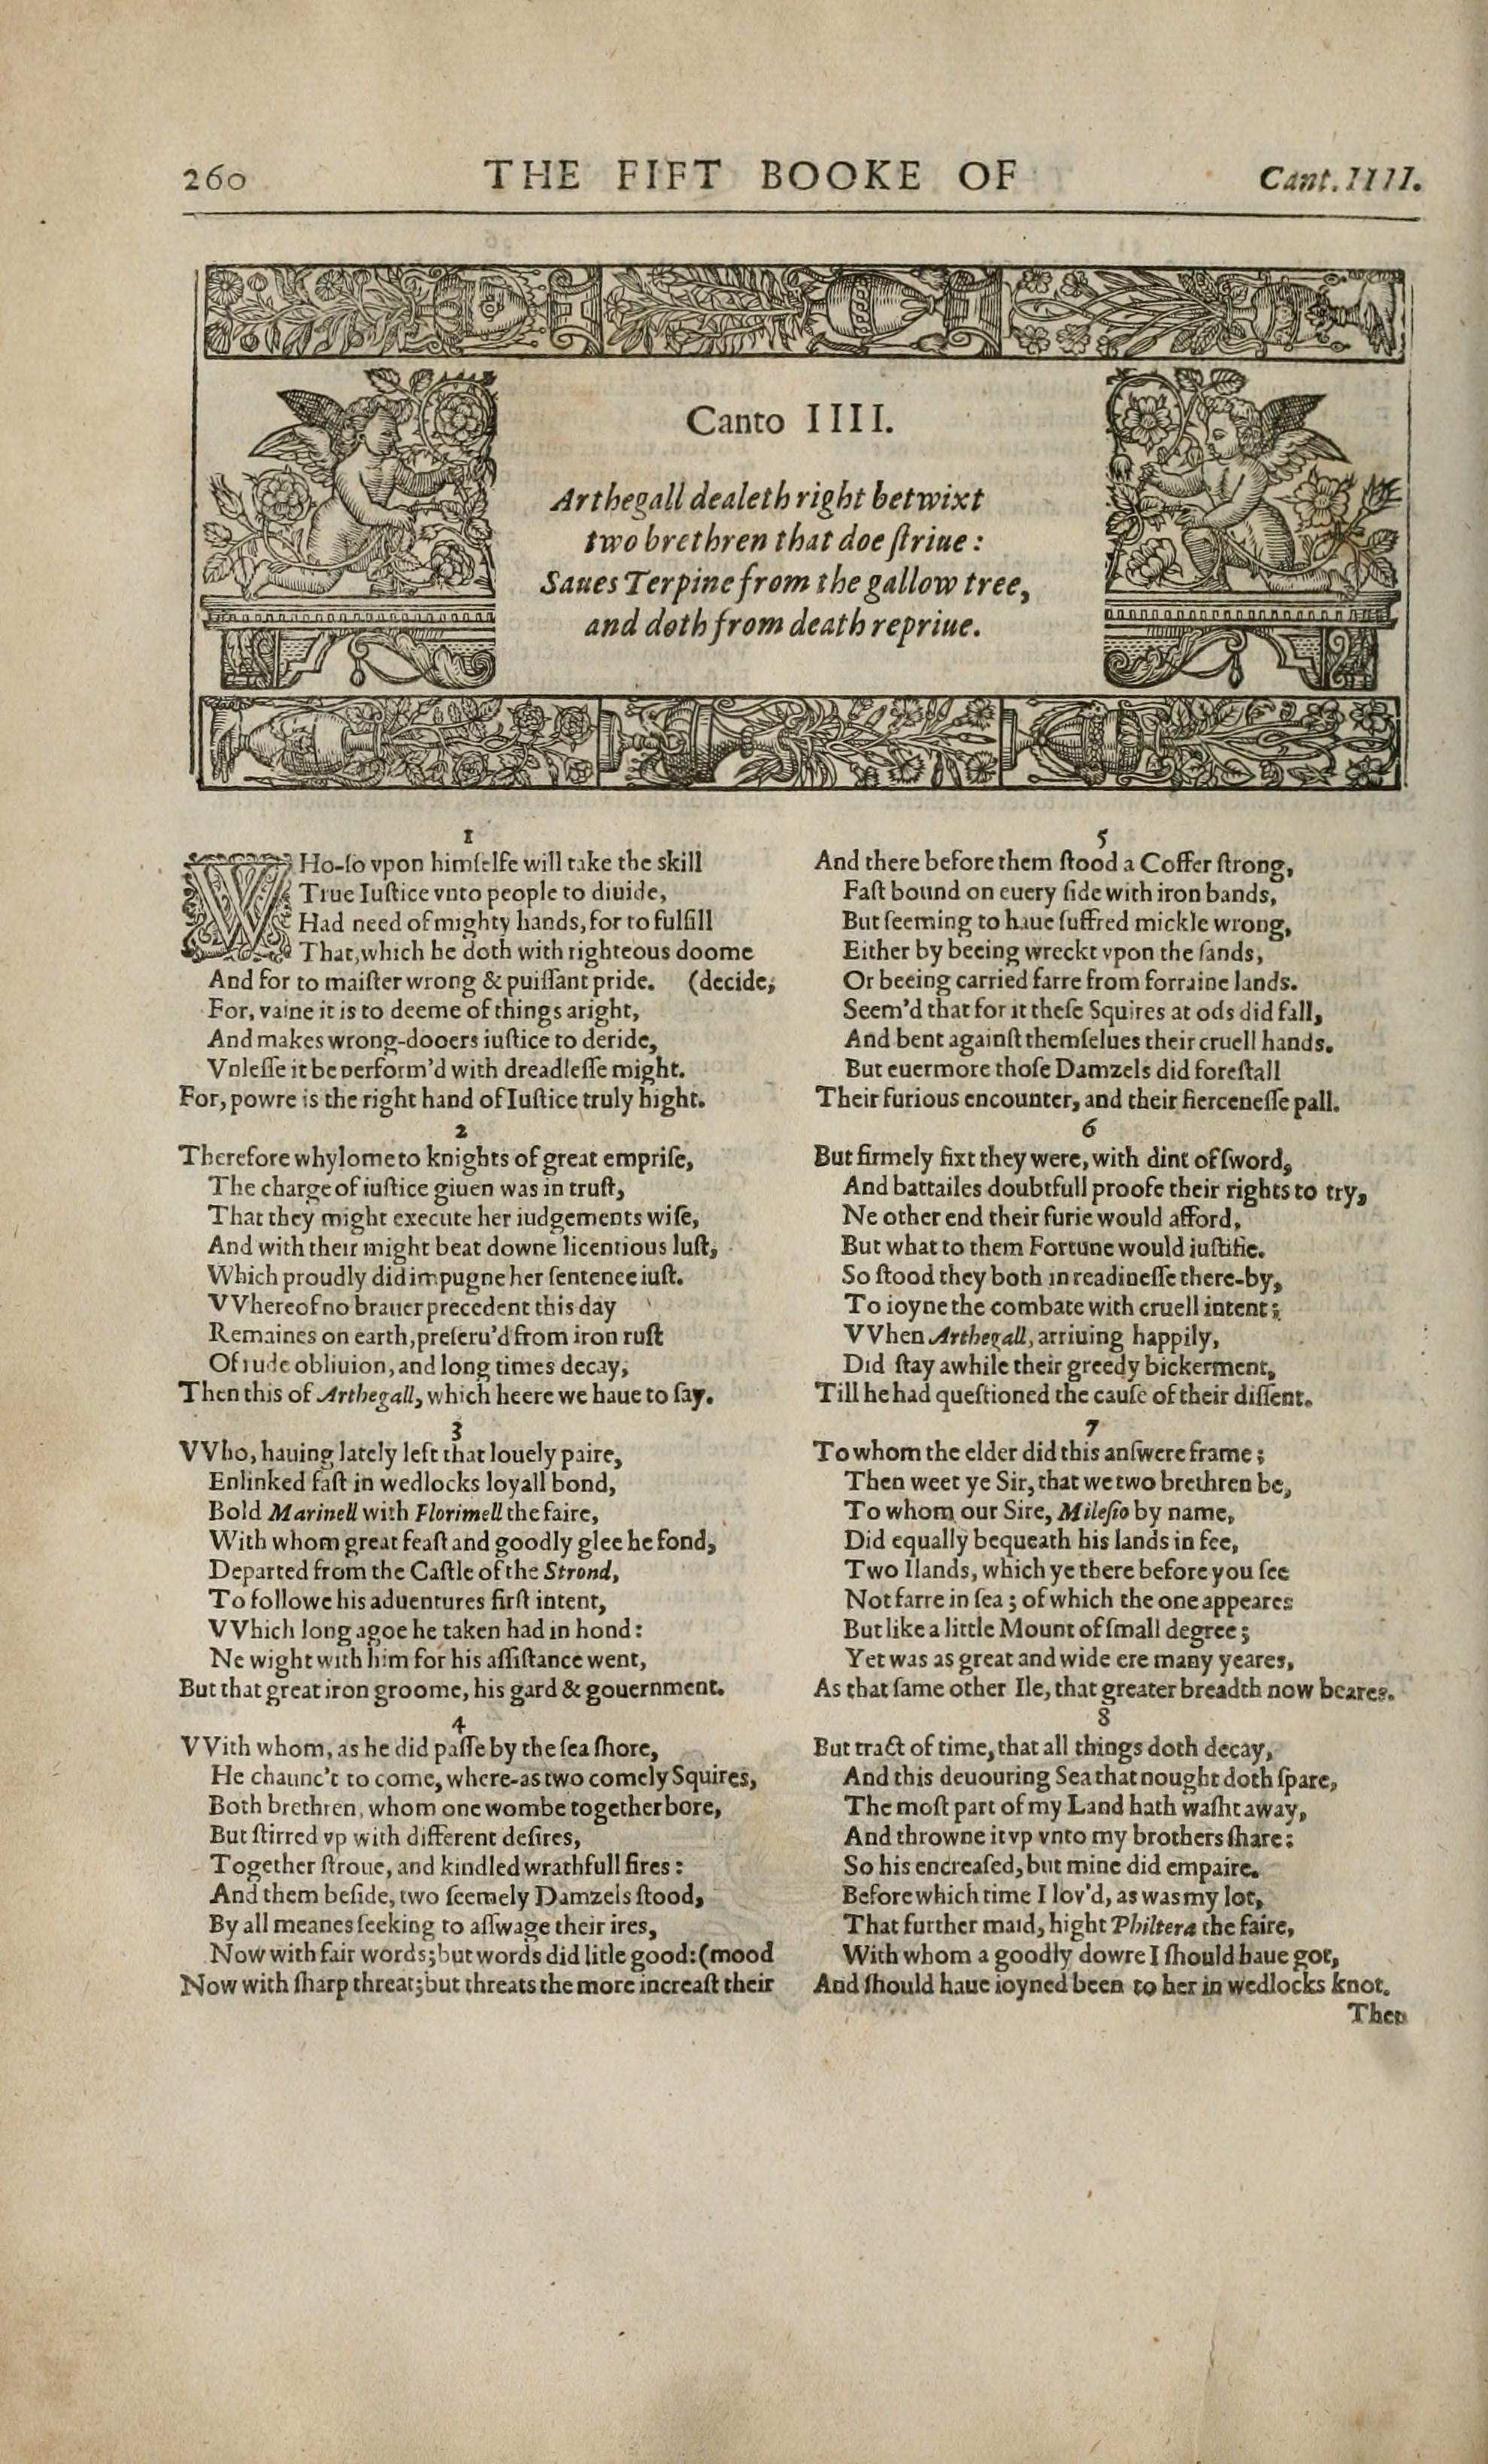 260 THE FIFT BOOKE OF Cant. IIII.
Canto IIII.
Arthegall dealeth right betwixt
two brethren that doe ſtriue:
Saues Terpine from the gallow tree,
and doth from death repriue.
1
WHo-ſo vpon himſelfe will take the skill
True Iuſtice vnto people to diuide,
Had need of mighty hands, for to fulfill
That, which he doth with righteous doome
And for to maiſter wrong & puiſſant pride. (decide,
For, vaine it is to deeme of things aright,
And makes wrong-dooers iuſtice to deride,
Vnleſſe it be perform'd with dreadleſſe might.
For, powre is the right hand of Iuſtice truly hight.
2
Therefore whylome to knights of great empriſe,
The charge of iuſtice giuen was in truſt,
That they might execute her iudgements wiſe,
And with their might beat downe licentious luſt,
Which proudly did impugne her ſentence iuſt.
VVhereof no brauer precedent this day
Remaines on earth, preſeru'd from iron ruſt
Of rude obliuion, and long times decay,
Then this of Arthegall, which heere we haue to ſay.
3
VVho, hauing lately left that louely paire,
Enlinked faſt in wedlocks loyall bond,
Bold Marinell with Florimell the faire,
With whom great feaſt and goodly glee he fond,
Departed from the Caſtle of the Strond,
To followe his aduentures firſt intent,
VVhich long agoe he taken had in hond:
Ne wight with him for his aſſiſtance went,
But that great iron groome, his gard & gouernment.
4
VVith whom, as he did paſſe by the ſea ſhore,
He chaunc't to come, where-as two comely Squires,
Both brethren, whom one wombe together bore,
But ſtirred vp with different deſires,
Together ſtroue, and kindled wrathfull fires:
And them beſide, two ſeemely Damzels ſtood,
By all meanes ſeeking to aſſwage their ires,
Now with fair words; but words did litle good: (mood
Now with ſharp threat; but threats the more increaſt their
5
And there before them ſtood a Coffer ſtrong,
Faſt bound on euery ſide with iron bands,
But ſeeming to haue ſuffred mickle wrong,
Either by beeing wreckt vpon the ſands,
Or beeing carried farre from forraine lands.
Seem'd that for it theſe Squires at ods did fall,
And bent againſt themſelues their cruell hands.
But euermore thoſe Damzels did foreſtall
Their furious encounter, and their fierceneſſe pall.
6
But firmely fixt they were, with dint of ſword,
And battailes doubtfull proofe their rights to try,
Ne other end their furie would afford,
But what to them Fortune would iuſtifie.
So ſtood they both in readineſſe there-by,
To ioyne the combate with cruell intent;
VVhen Arthegall, arriuing happily,
Did ſtay awhile their greedy bickerment,
Till he had queſtioned the cauſe of their diſſent.
7
To whom the elder did this anſwere frame;
Then weet ye Sir, that we two brethren be,
To whom our Sire, Mileſio by name,
Did equally bequeath his lands in fee,
Two Ilands, which ye there before you ſee
Not farre in ſea; of which the one appeares
But like a little Mount of ſmall degree;
Yet was as great and wide ere many yeares,
As that ſame other Ile, that greater breadth now beares.
8
But tract of time, that all things doth decay,
And this deuouring Sea that nought doth ſpare,
The moſt part of my Land hath waſht away,
And throwne it vp vnto my brothers ſhare:
So his encreaſed, but mine did empaire.
Before which time I lov'd, as was my lot,
That further maid, hight Philtera the faire,
With whom a goodly dowre I ſhould haue got,
And ſhould haue ioyned been to her in wedlocks knot.
Then